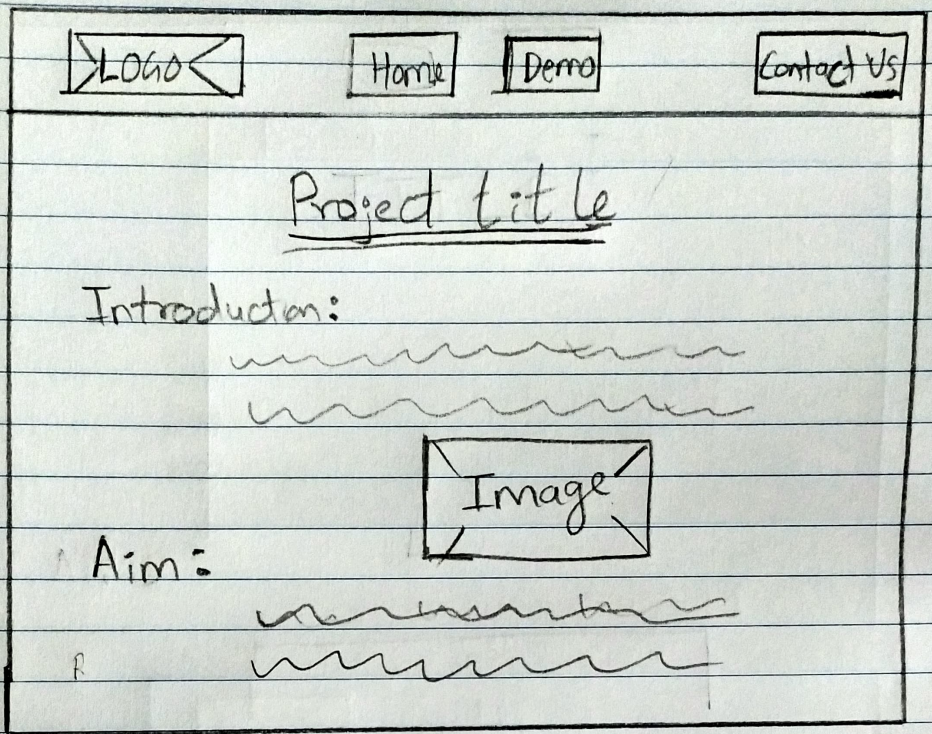 LOGO Home Demo Contact Us
Project title
Introducton:
Image
Aim: